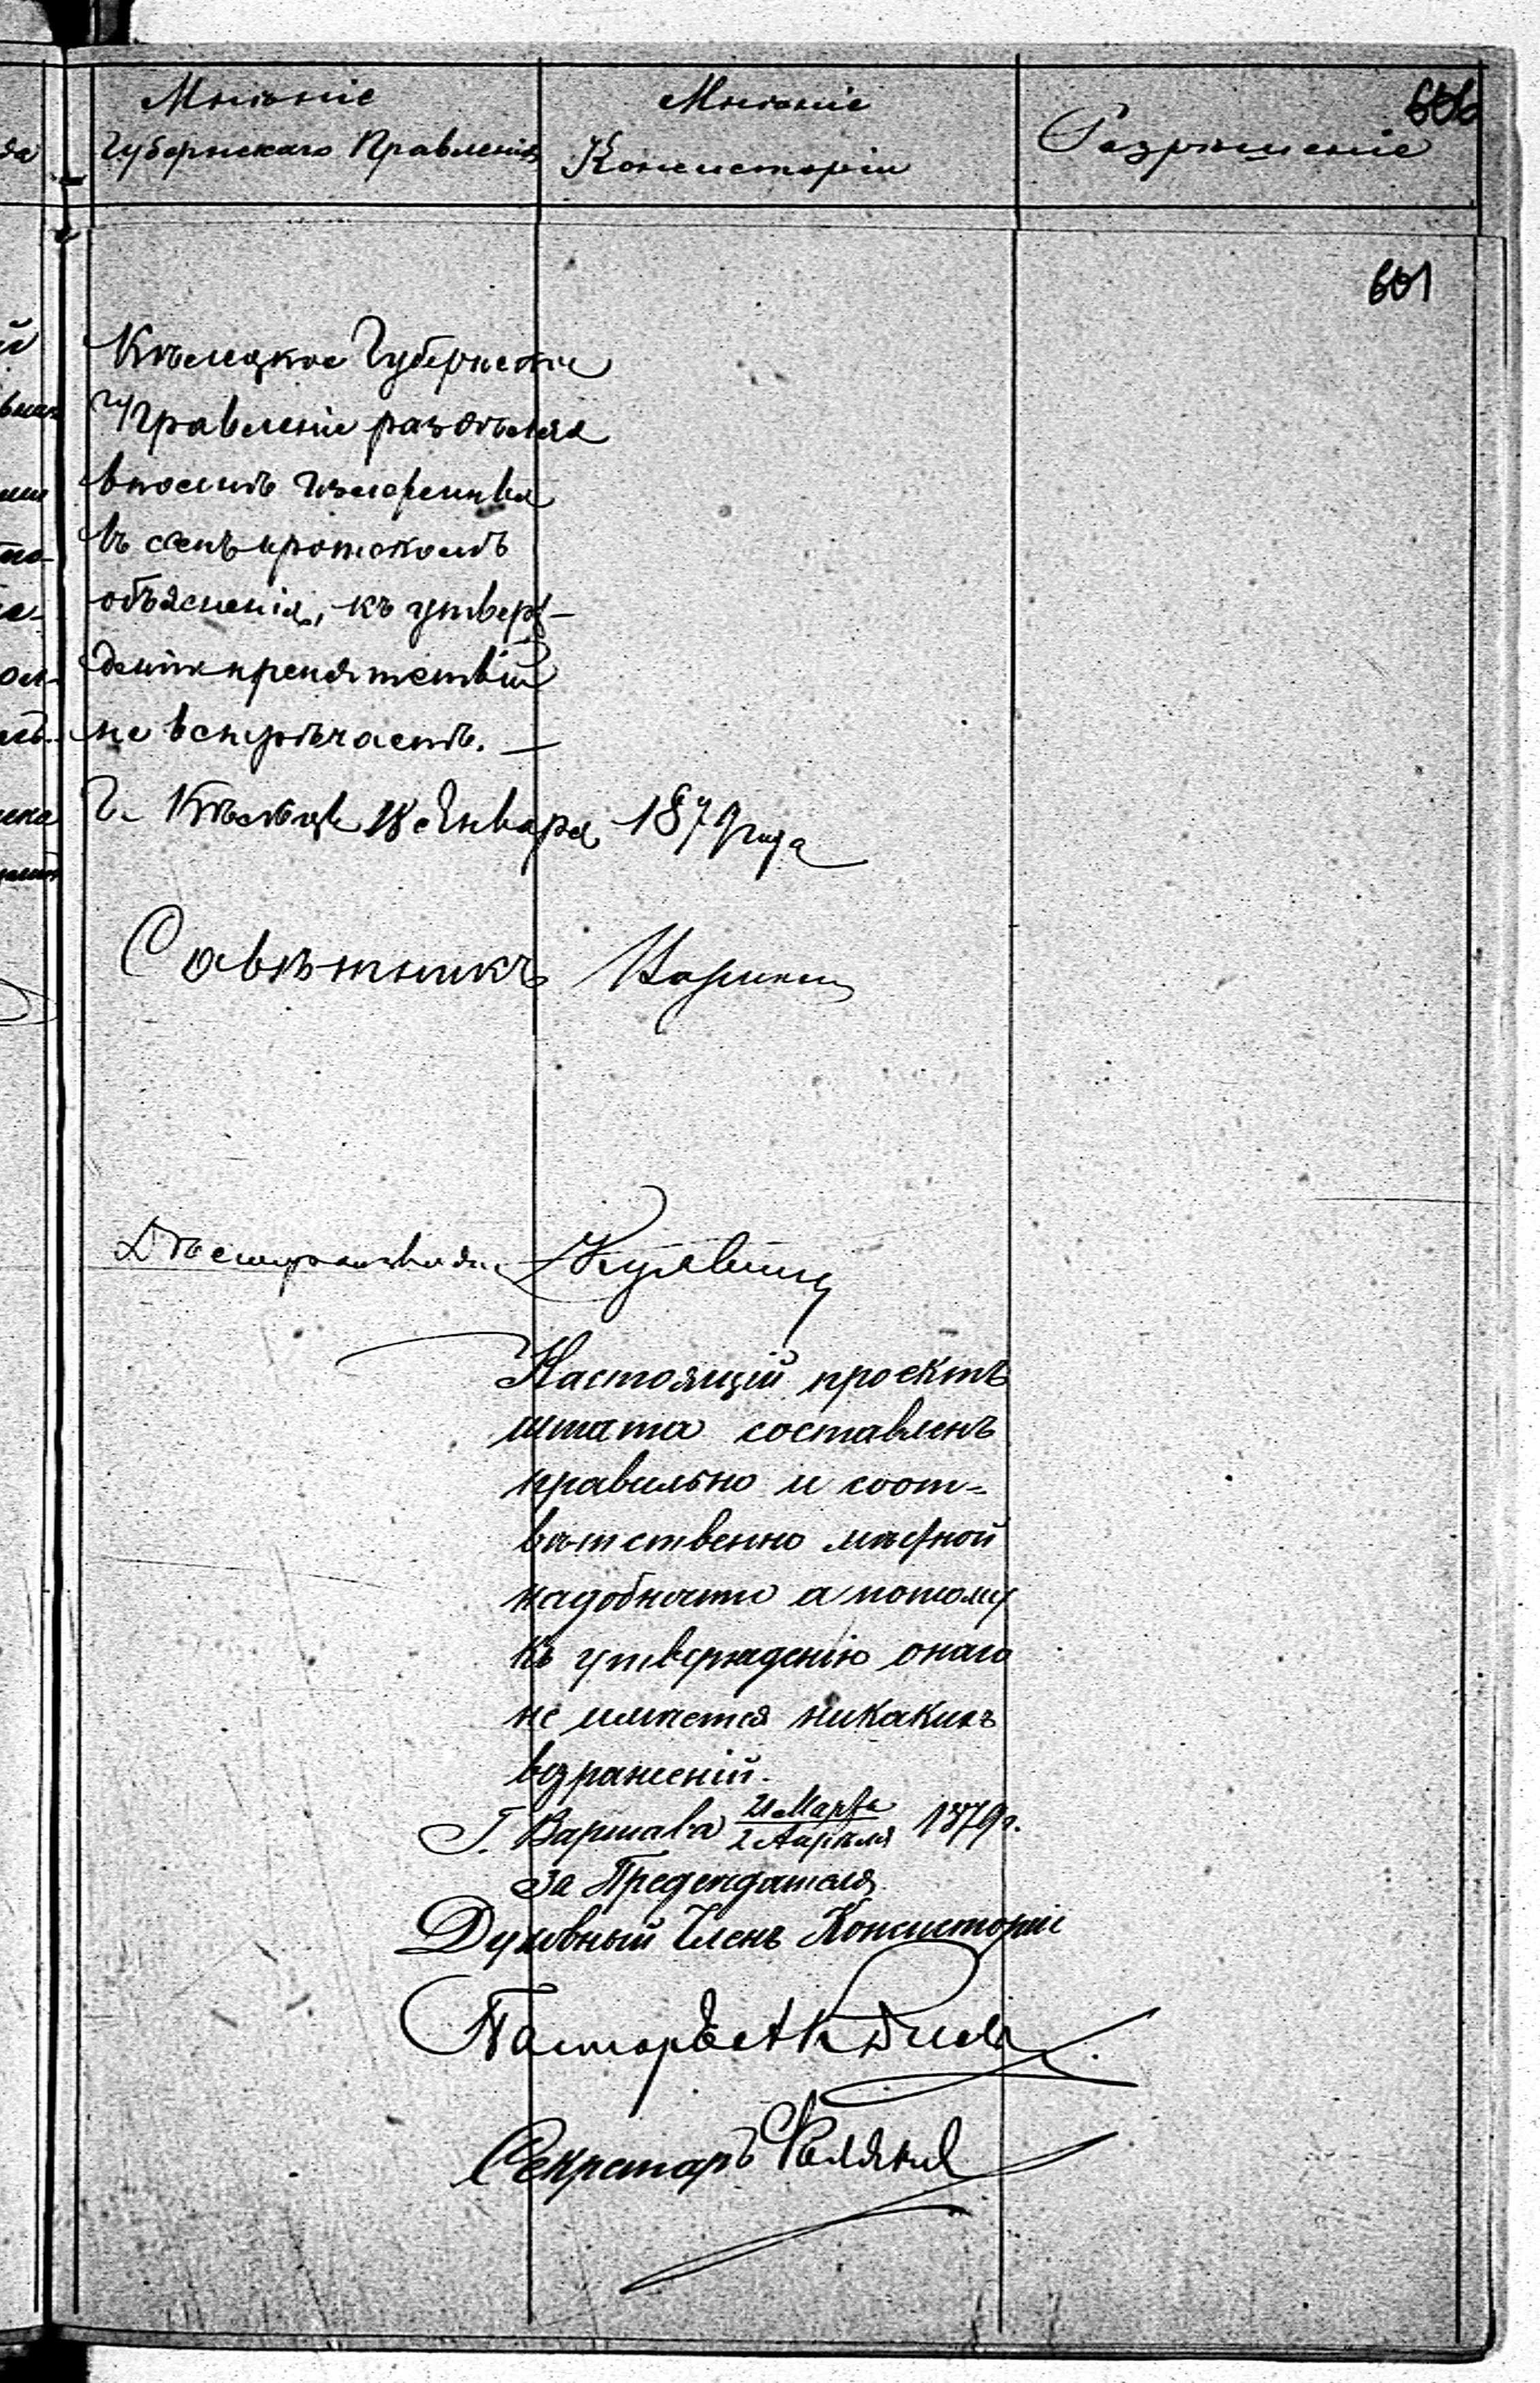 Мнѣніе
Губернскаго Правленія
Мнѣніе
Консисторіи
Разрѣшеніе
606
601
Кѣлецкое Губернское
Правленіе раздѣляя
вполнѣ
въ семъ протоколѣ
объясненія, къ утверж-
денію препятствій
не встрѣчаетъ. —
Г. Кѣльцы 18 Января 1879 года
Совѣтникъ
Дѣлопроизводи
Настоящій проектъ
штата составленъ
правильно и соот-
вѣтственно мѣстной
надобности а потому
къ утвержденію онаго
не имѣется никакихъ
возраженій.
Г. Варшава 21 Марта / 2 Апрѣля 1879 г.
За Предсѣдателя
Духовный Членъ Консисторіи
Пасторъ
Секретарь